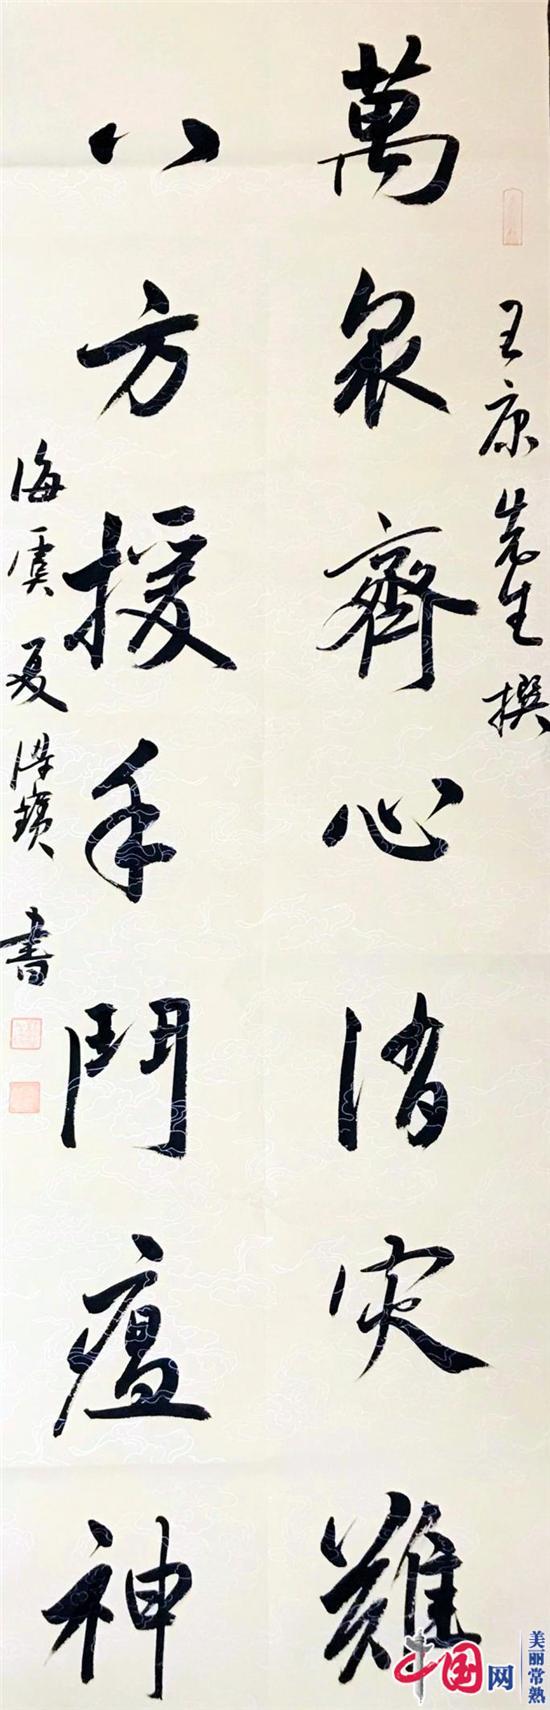 王康先生撰
萬衆齊心消灾難
八方援手鬥瘟神
海虞夏書
中国网
美丽常熟